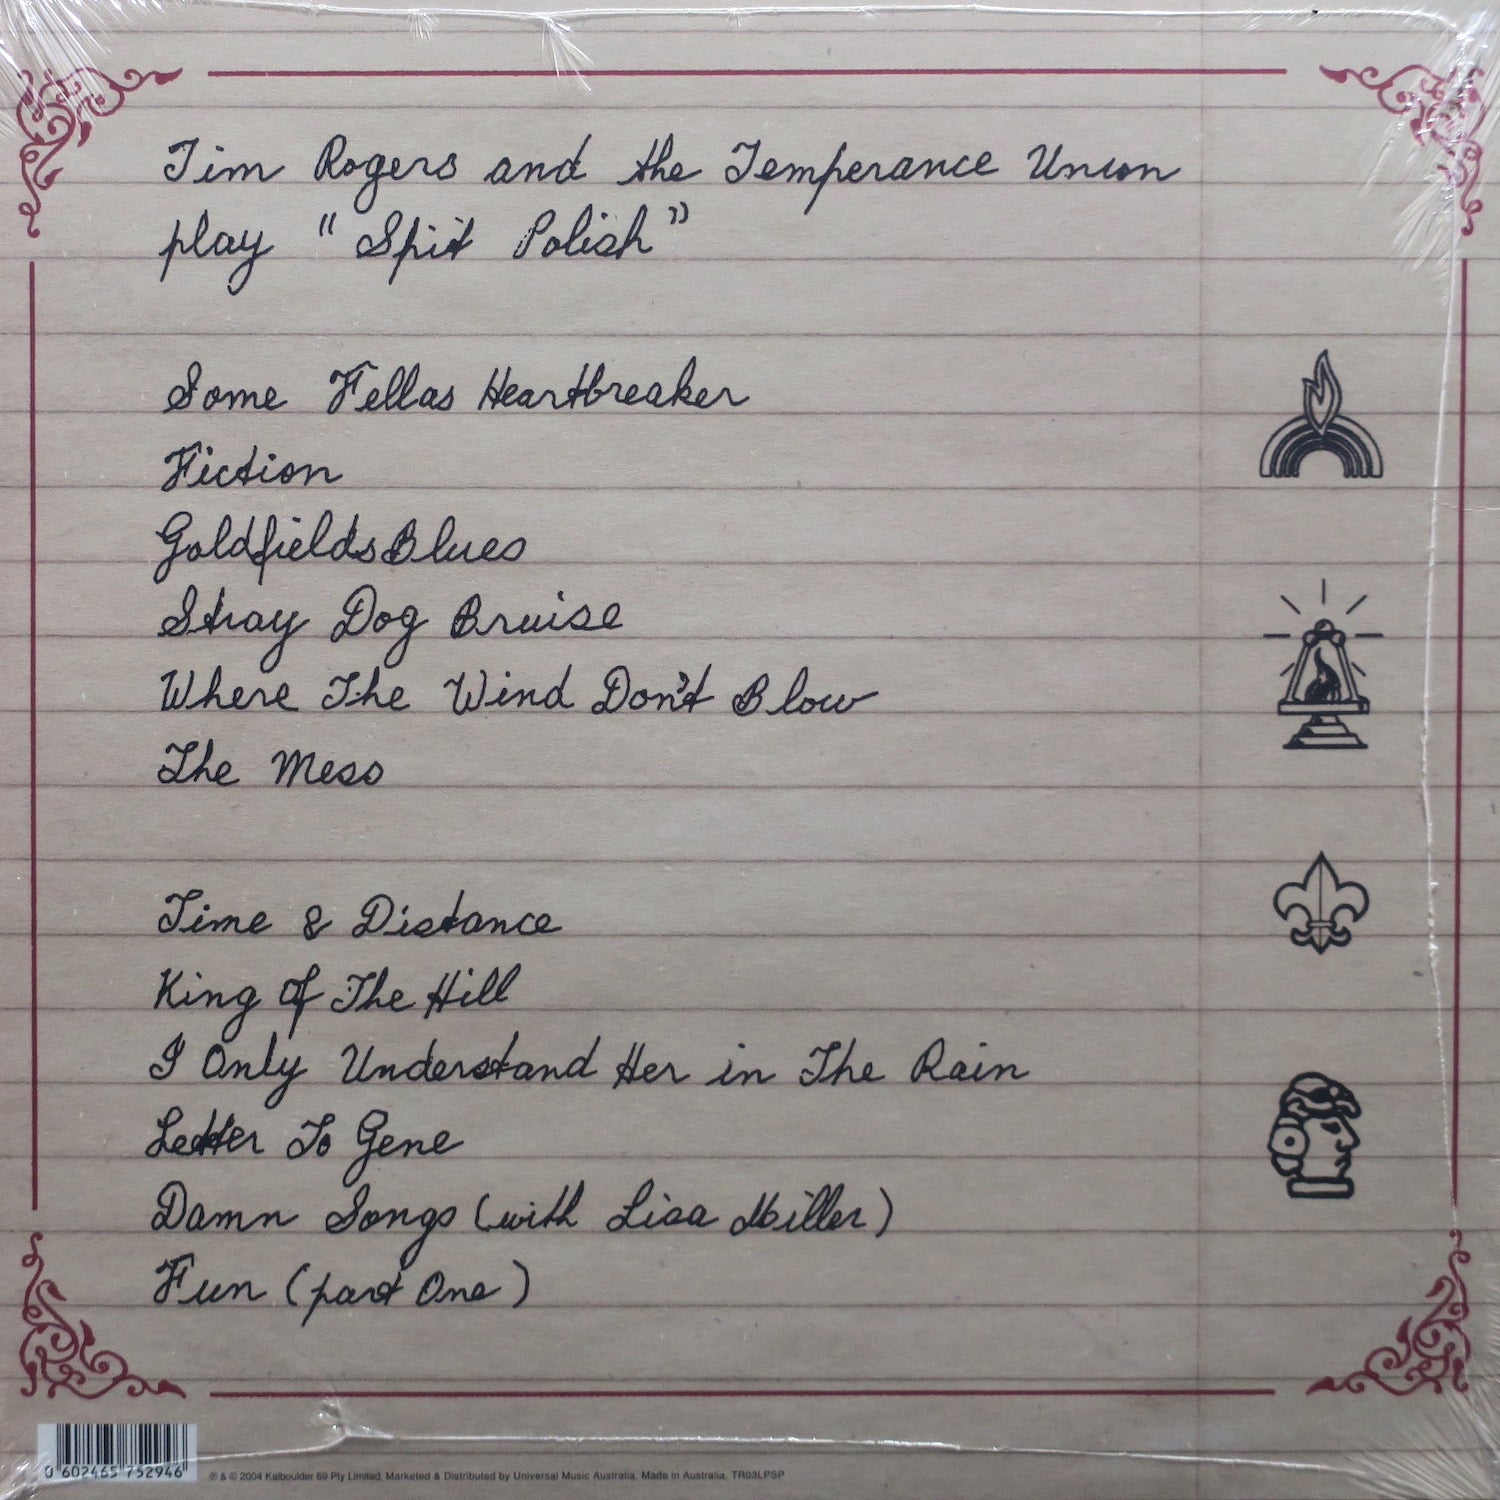 Tim Rogers and the Temperance Union
play "Spit Polish"
Some Fellas Heartbreaker
Fiction
Goldfields Blues
Stray Dog Bruise
Where The Wind Don't Blow
The Mess
Time & Distance
King Of The Hill
I Only Understand Her in The Rain
Letter To Gene
Damn Songs (with Lisa Miller)
Fun (part One)
0 602465 752946
℗ & © 2004 Kalboulder 69 Pty Limited. Marketed & Distributed by Universal Music Australia. Made in Australia. TR03LPSP